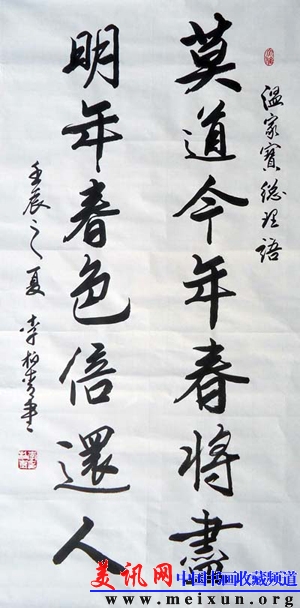 温家寶總理語
莫道今年春將盡
明年春色倍還人
壬辰之夏 李柏青書
美讯网 中国书画收藏频道
www.meixun.org